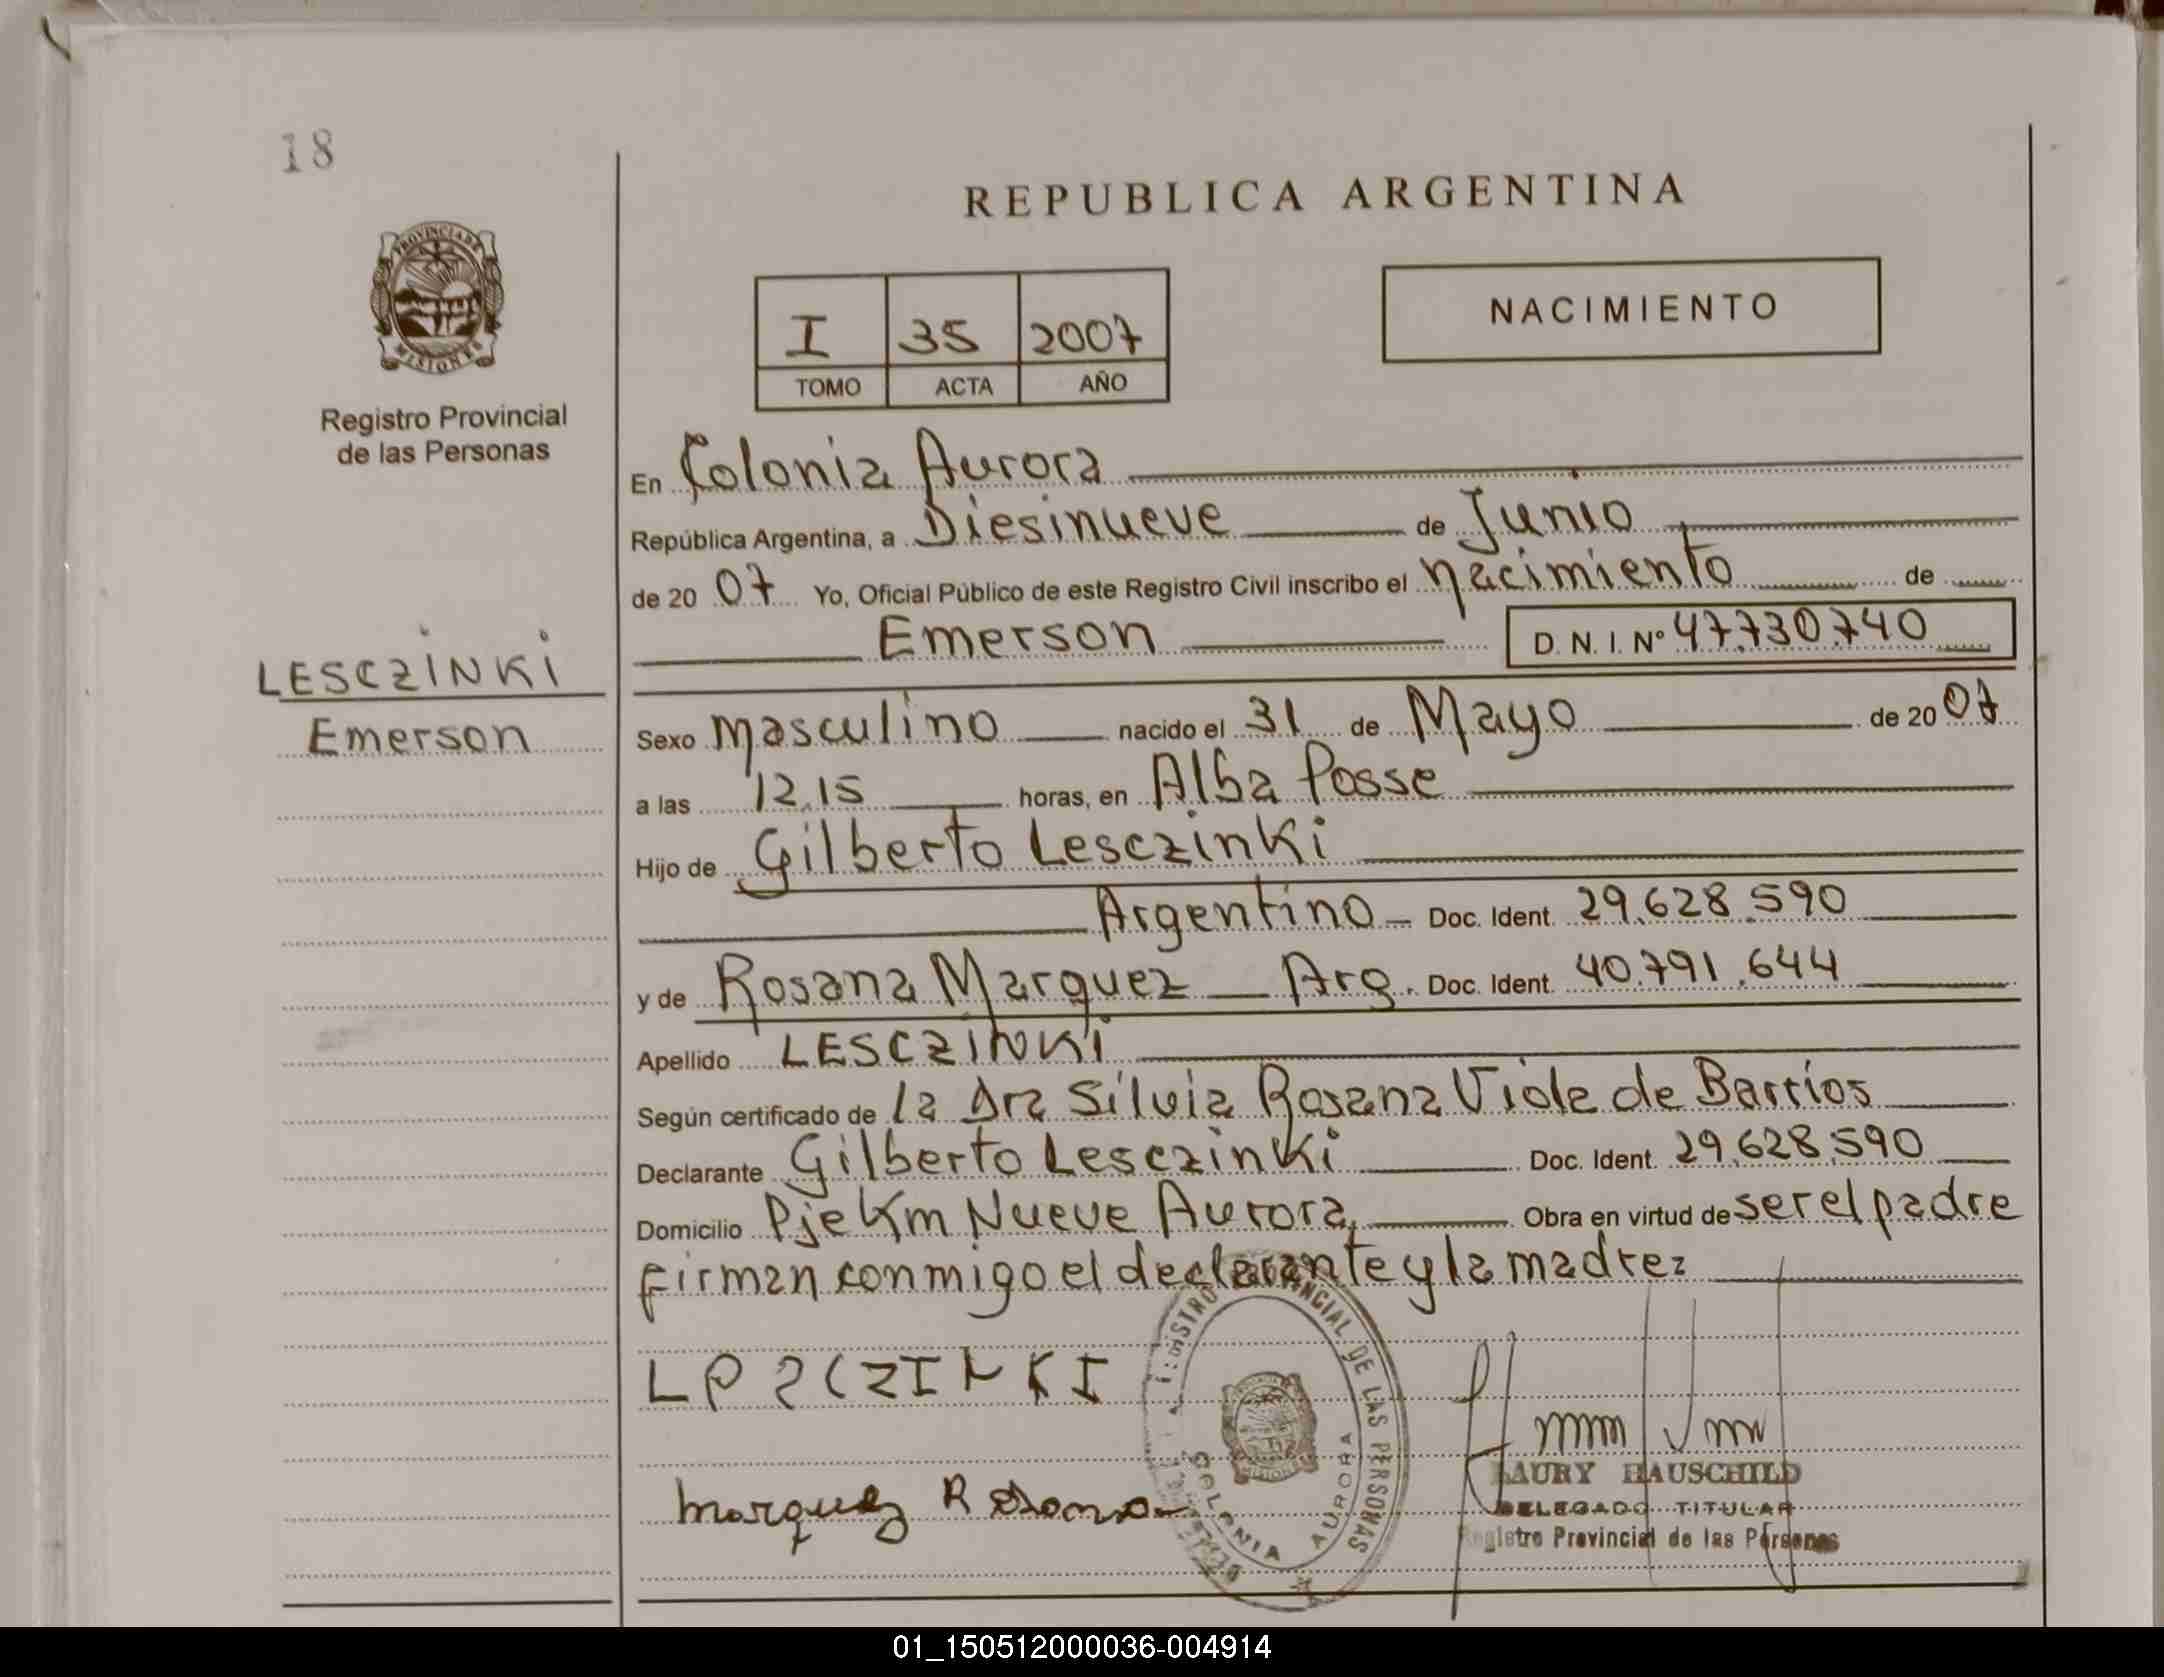 18
REPUBLICA ARGENTINA
PROVINCIA DE
MISIONES
Registro Provincial
de las Personas
I 35 2007
TOMO ACTA AÑO
NACIMIENTO
En Colonia Aurora
República Argentina, a Diesinueve de Junio
de 20 07 Yo, Oficial Público de este Registro Civil inscribo el nacimiento de
Emerson D.N.I. Nº 47.730.740
LESCZINKI
Emerson
Sexo masculino nacido el 31 de Mayo de 20 07
a las 12,15 horas, en Alba Posse
Hijo de Gilberto Lesczinki
Argentino Doc. Ident. 29.628.590
y de Rosana Marquez Arg. Doc. Ident. 40.791.644
Apellido LESCZINKI
Según certificado de la Dra Silvia Rosana Viole de Barrios
Declarante Gilberto Lesczinki Doc. Ident. 29.628.590
Domicilio Pje Km Nueve Aurora, Obra en virtud de ser el padre
firman conmigo el declarante y la madre
LESCZINKI
Marquez Rosana
PROVINCIAL DE LAS PERSONAS
COLONIA AURORA
LAURY HAUSCHILD
DELEGADO TITULAR
Registro Provincial de las Personas
01_150512000036-004914